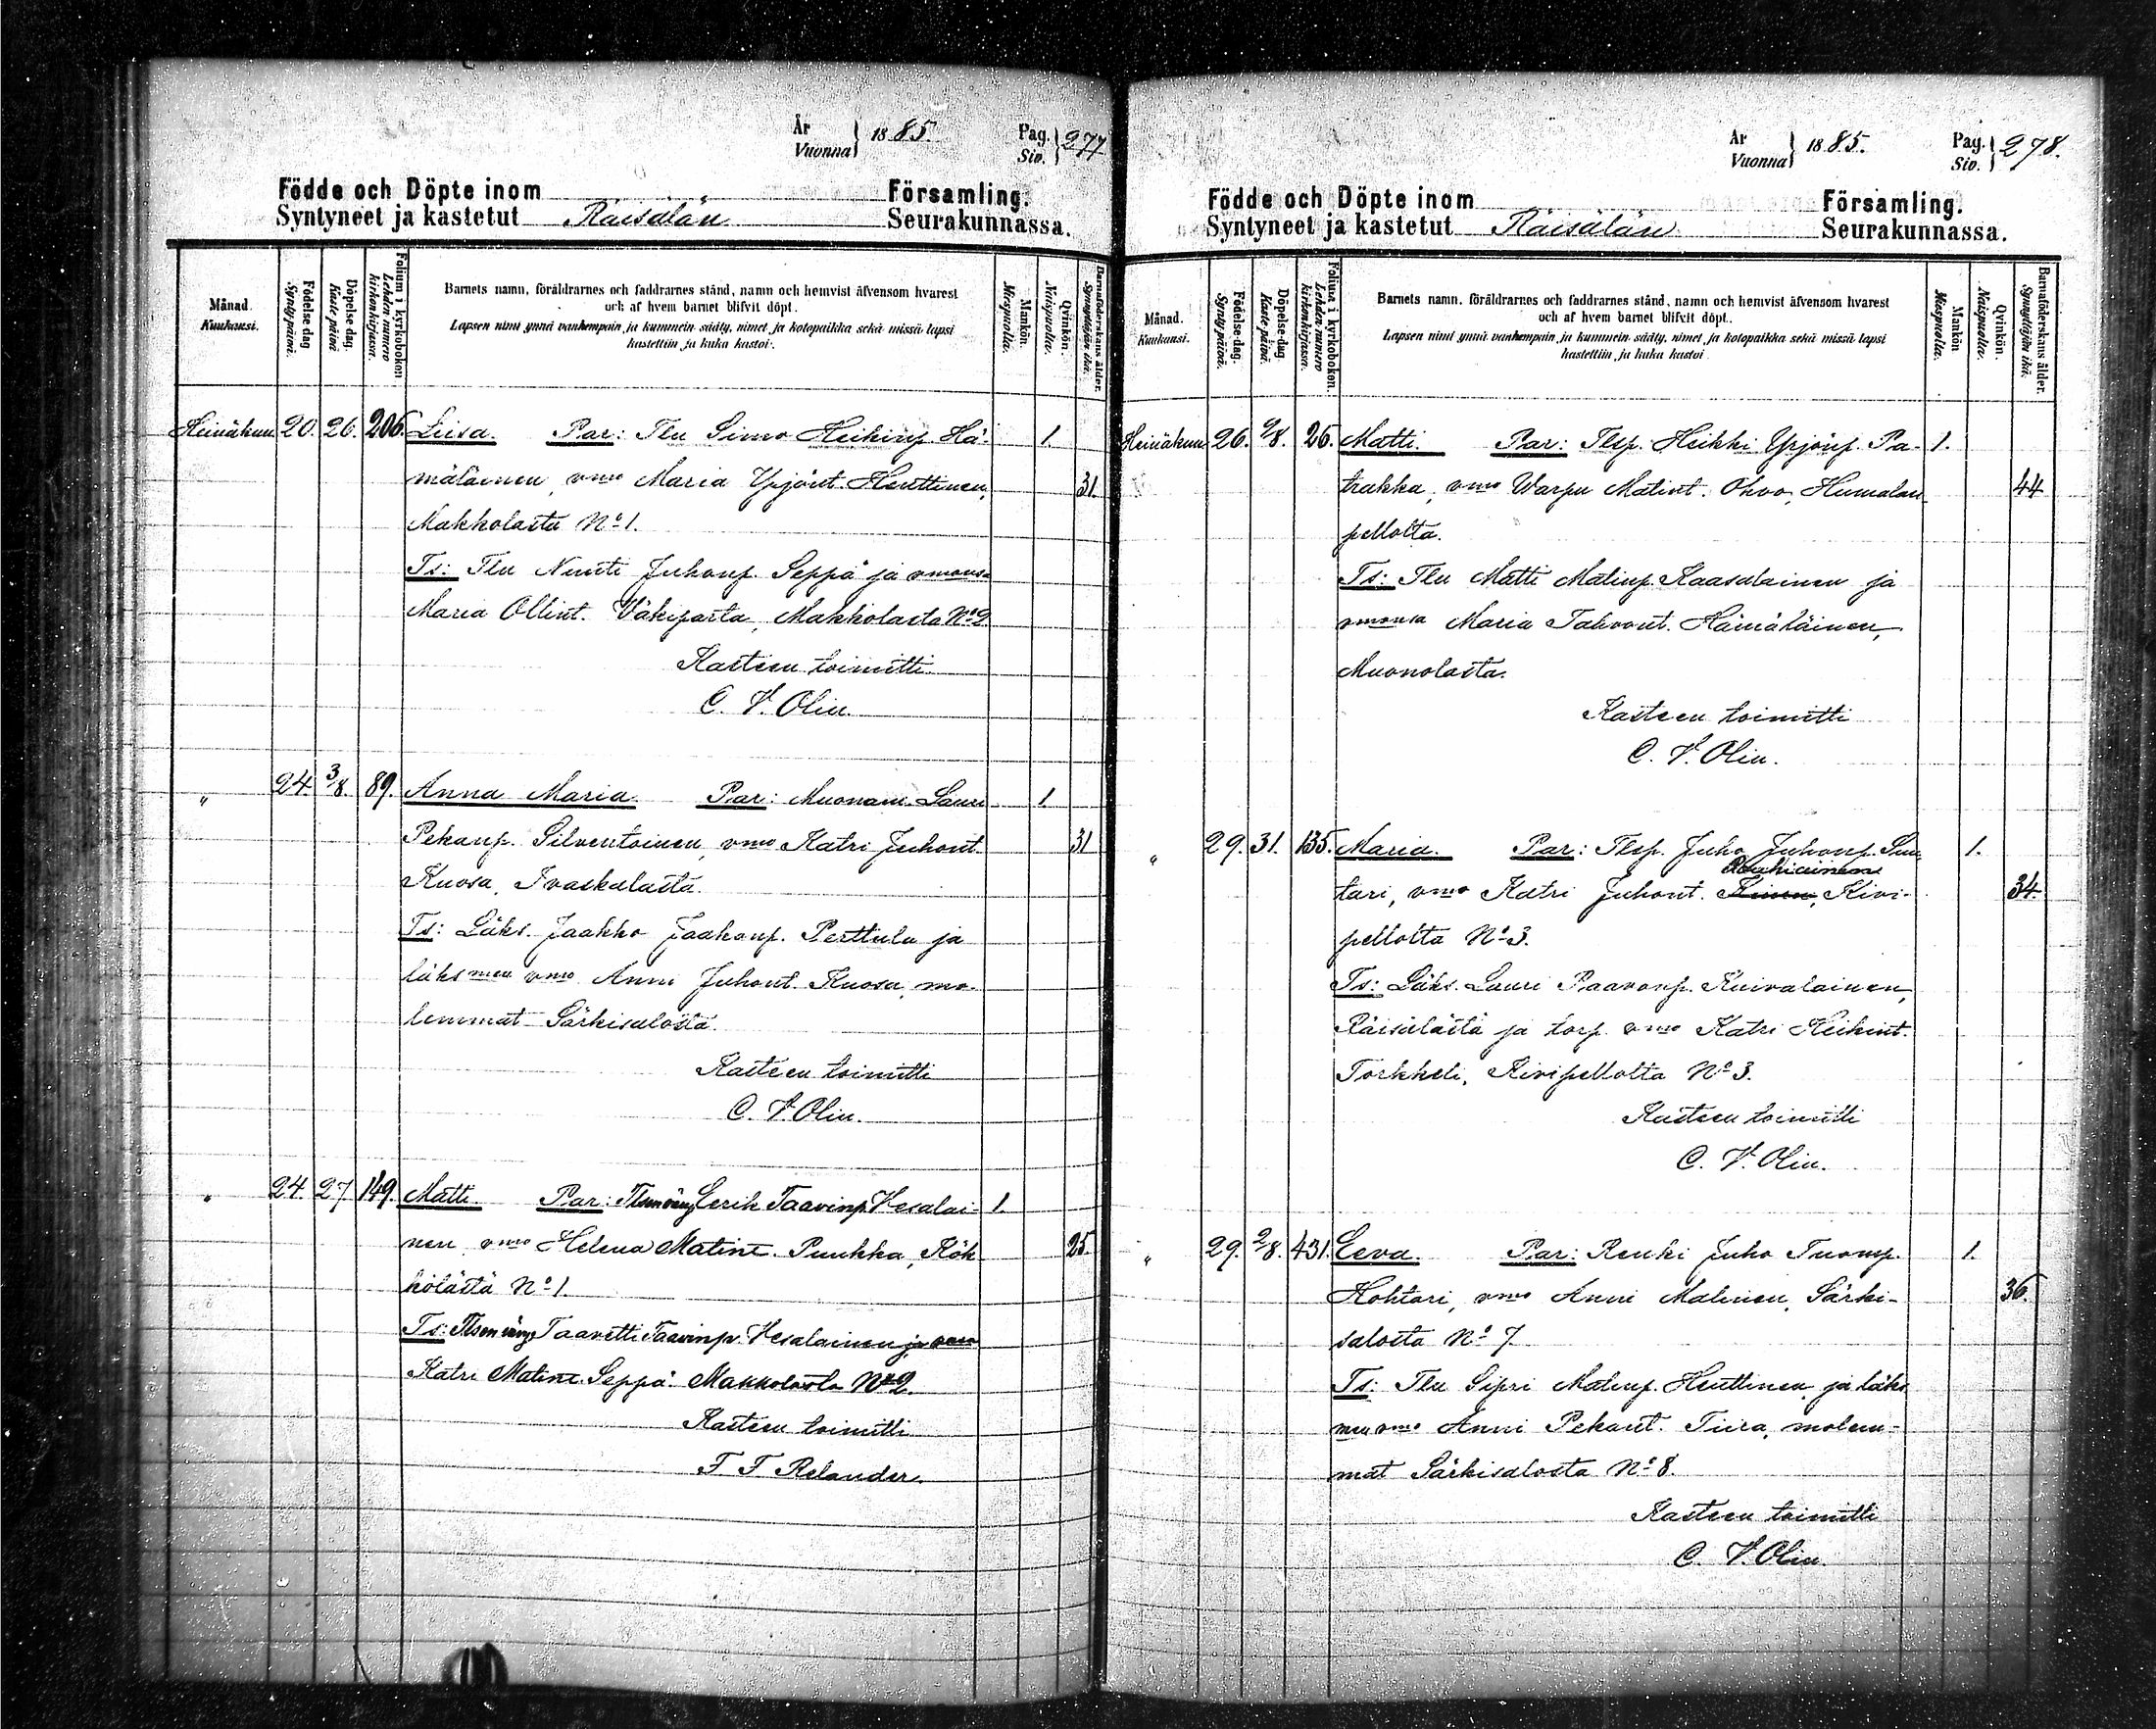 År
Vuonna } 1885.
Pag.
Siv. } 277
Födde och Döpte inom Församling.
Syntyneet ja kastetut Räisälän Seurakunnassa.
Månad.
Kuukausi.
Födelse dag
Syntypäivä.
Döpelse dag.
Kastepäivä
Folium i kyrkoboken
Lehden numero kirkonkirjassa.
Barnets namn, föräldrarnes och faddrarnes stånd, namn och hemvist äfvensom hvarest
och af hvem barnet blifvit döpt.
Lapsen nimi ynnä vanhempain ja kummein sääty, nimet ja kotopaikka sekä missä lapsi
kastettiin ja kuka kastoi.
Mankön.
Miespuolia.
Qvinkön.
Naispuolia.
Barnaföderskans ålder.
Synnyttäjän ikä.
Heinäkuu 20. 26. 206. Liisa. Par: Tln Simo Heikinp. Hä- 1.
mäläinen, vmo Maria Yrjönt. Henttinen, 31
Makkolasta No 1.
Ts: Tln Nuuti Juhonp. Seppä ja vmonsa
Maria Ollint. Väkiparta, Makkolasta No 2
Kasteen toimitti
C. V. Olin.
" 24. 3/8. 89. Anna Maria. Par: Muonam. Lauri 1.
Pekanp. Silventoinen, vmo Katri Juhont. 31
Kuosa, Ivaskalasta.
Ts: Läks. Jaakko Jaakonp. Perttula ja
läksmen vmo Anni Juhont. Kuosa, mo-
lemmat Särkisalosta.
Kasteen toimitti
C. V. Olin.
" 24. 27. 149. Matti. Par: Eerik Taavinp. Hesalai- 1.
nen vmo Helena Matint. Puukka, Kök- 25.
kölästä No 1.
Ts: Taavetti Taavinp. Hesalainen ja vmo
Katri Matint. Seppä Makkolasta No 2.
Kasteen toimitti
F F Relander.
År
Vuonna } 1885.
Pag.
Siv. } 278.
Födde och Döpte inom Församling.
Syntyneet ja kastetut Räisälän Seurakunnassa.
Månad.
Kuukausi.
Födelse-dag.
Syntypäivä.
Döpelse-dag
Kastepäivä.
Folium i kyrkobokon.
Lehden numero kirkonkirjassa.
Barnets namn, föräldrarnes och faddrarnes stånd, namn och hemvist äfvensom hvarest
och af hvem barnet blifvit döpt.
Lapsen nimi ynnä vanhempain ja kummein sääty, nimet ja kotopaikka sekä missä lapsi
kastettiin ja kuka kastoi
Mankön
Miespuolia.
Qvinkön.
Naispuolia.
Barnaföderskans ålder.
Synnyttäjän ikä.
Heinäkuu 26. 9/8. 26. Matti. Par: Tlsp. Heikki Yrjönp. Pa- 1.
trakka, vmo Warpu Matint. Ohvo, Humalan 44
pellolta.
Ts: Tln Matti Matinp. Kaasalainen ja
vmonsa Maria Tahvont. Hämäläinen,
Muonolasta.
Kasteen toimitti
C. V. Olin.
" 29. 31. 135. Maria. Par: Tlsp. Juho Juhonp. Suu- 1.
tari, vmo Katri Juhont. Kivi- 34.
pellolta No 3.
Ts: Läks. Lauri Paavonp. Kuivalainen,
Räisälästä ja torp. vmo Katri Heikint.
Torkkeli, Kivipellolta No 3.
Kasteen toimitti
C. V. Olin.
" 29. 2/8. 431. Eeva. Par: Renki Juho Tuomp. 1.
Kohtari, vmo Anni Malinen, Särki- 36.
salosta No 7
Ts: Tln Sipri Matinp. Henttinen, ja läks
men vmo Anni Pekant. Tiira, molem-
mat Särkisalosta No 8.
Kasteen toimitti
C. V. Olin.